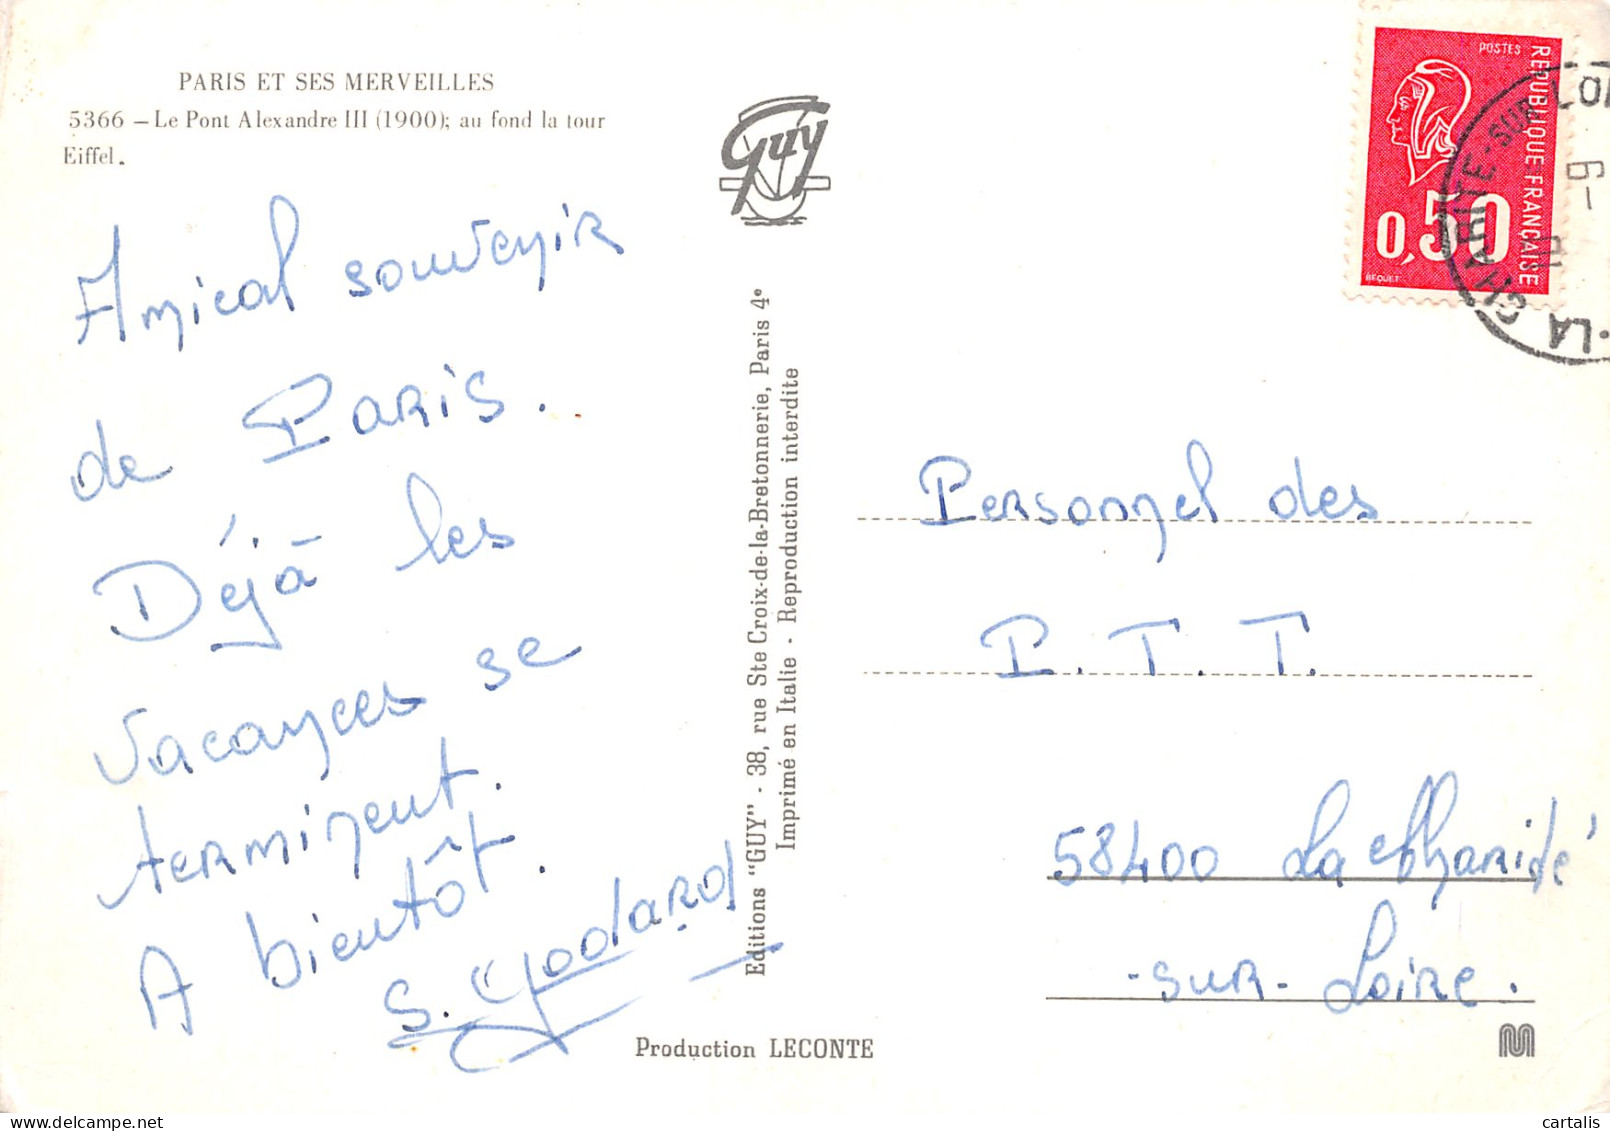 PARIS ET SES MERVEILLES
5366 – Le Pont Alexandre III (1900); au fond la tour
Eiffel.
Amical souvenir
de Paris.
Déjà les
vacances se
terminent.
A bientôt.
S. Godard
Guy
Editions "GUY" - 38, rue Ste Croix-de-la-Bretonnerie, Paris 4e
Imprimé en Italie - Reproduction interdite
Production LECONTE
POSTES
REPUBLIQUE FRANÇAISE
0,50
BEQUET
LA CHARITE-SUR-LOI
6-
Personnel des
P. T. T.
58400 La Charité
-sur-Loire.
cartalis
delcampe.net